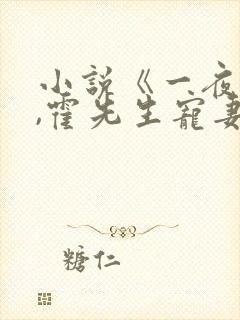 小说《一夜
,霍先生宠妻
糖仁